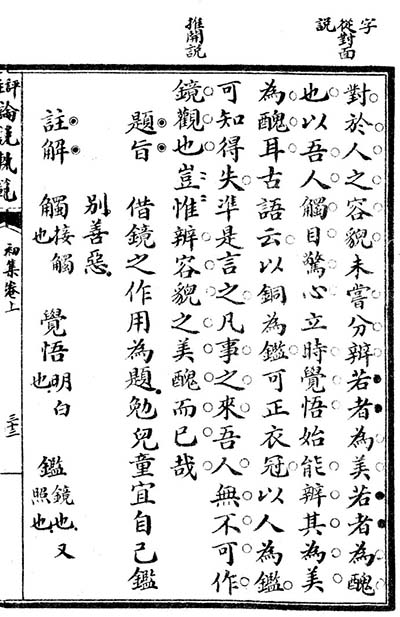 字從對面
說
推開說
對於人之容貌未嘗分辨若者為美若者為醜
也以吾人觸目驚心立時覺悟始能辨其為美
為醜耳古語云以銅為鑑可正衣冠以人為鑑
可知得失準是言之凡事之來吾人無不可作
鏡觀也豈惟辨容貌之美醜而已哉
題旨 借鏡之作用為題勉兒童宜自己鑑
別善惡
註解 觸接觸也 覺悟明白也 鑑鏡也又照也
評註論說軌範 初集卷上 三十三